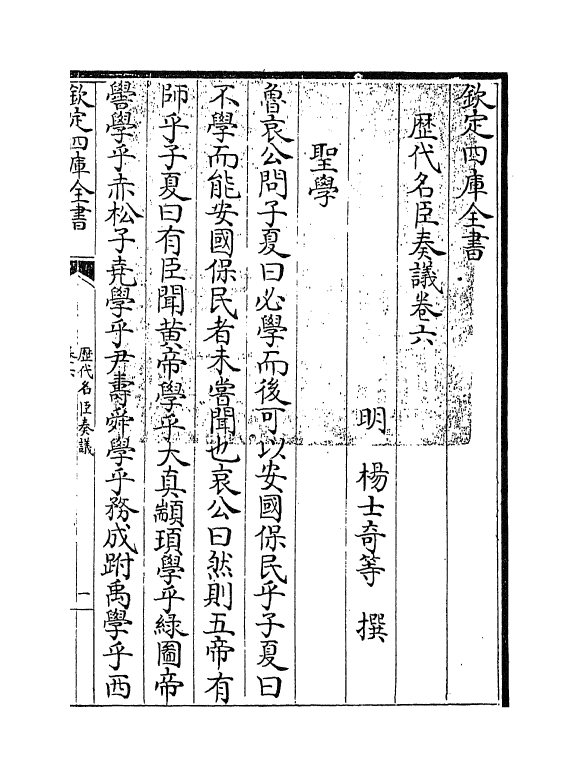 欽定四庫全書
歴代名臣奏議卷六
明 楊士奇等 撰
聖學
魯哀公問子夏曰必學而後可以安國保民乎子夏曰
不學而能安國保民者未嘗聞也哀公曰然則五帝有
師乎子夏曰有臣聞黄帝學乎大真顓頊學乎綠圖帝
嚳學乎赤松子堯學乎尹壽舜學乎務成跗禹學乎西
欽定四庫全書
歴代名臣奏議
卷六
一